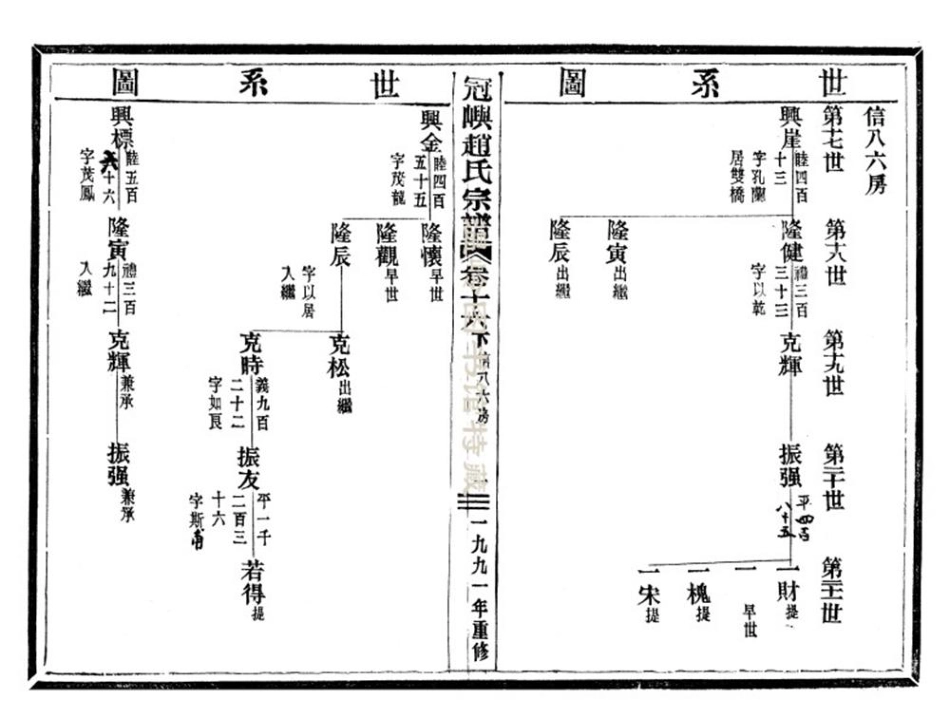 世系圖
信八六房
第十七世
興崖
睦四百
十三
字孔蘭
居雙橋
第十八世
隆健
禮三百
三十三
字以乾
隆寅
出繼
隆辰
出繼
第十九世
克輝
第二十世
振强
平四百
八十五
第二十一世
一財
提
一
早世
一槐
提
一宋
提
冠嶼趙氏宗譜
卷十六下
信八六房
一九九一年重修
世系圖
興金
睦四百
五十五
字茂龍
隆懷
早世
隆觀
早世
隆辰
字以居
入繼
克松
出繼
克時
義九百
二十二
字如良
振友
平一千
二百三
十六
字斯甫
若得
提
興標
睦五百
六十六
字茂鳳
隆寅
禮三百
九十二
入繼
克輝
兼承
振强
兼承